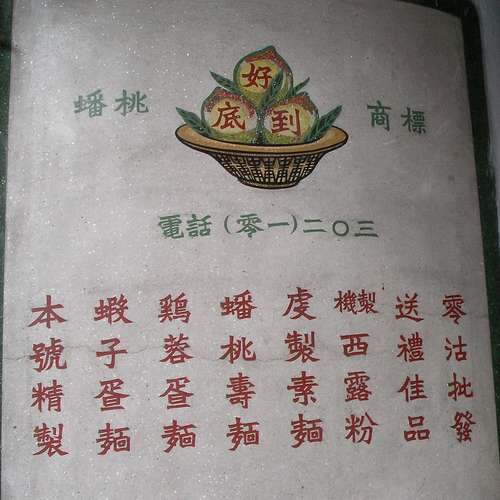 好
底到
蟠桃
商標
電話(零一)二〇三
本號精製
蝦子蛋麵
鷄蓉蛋麵
蟠桃壽麵
虔製素麵
機製西露粉
送禮佳品
零沽批發